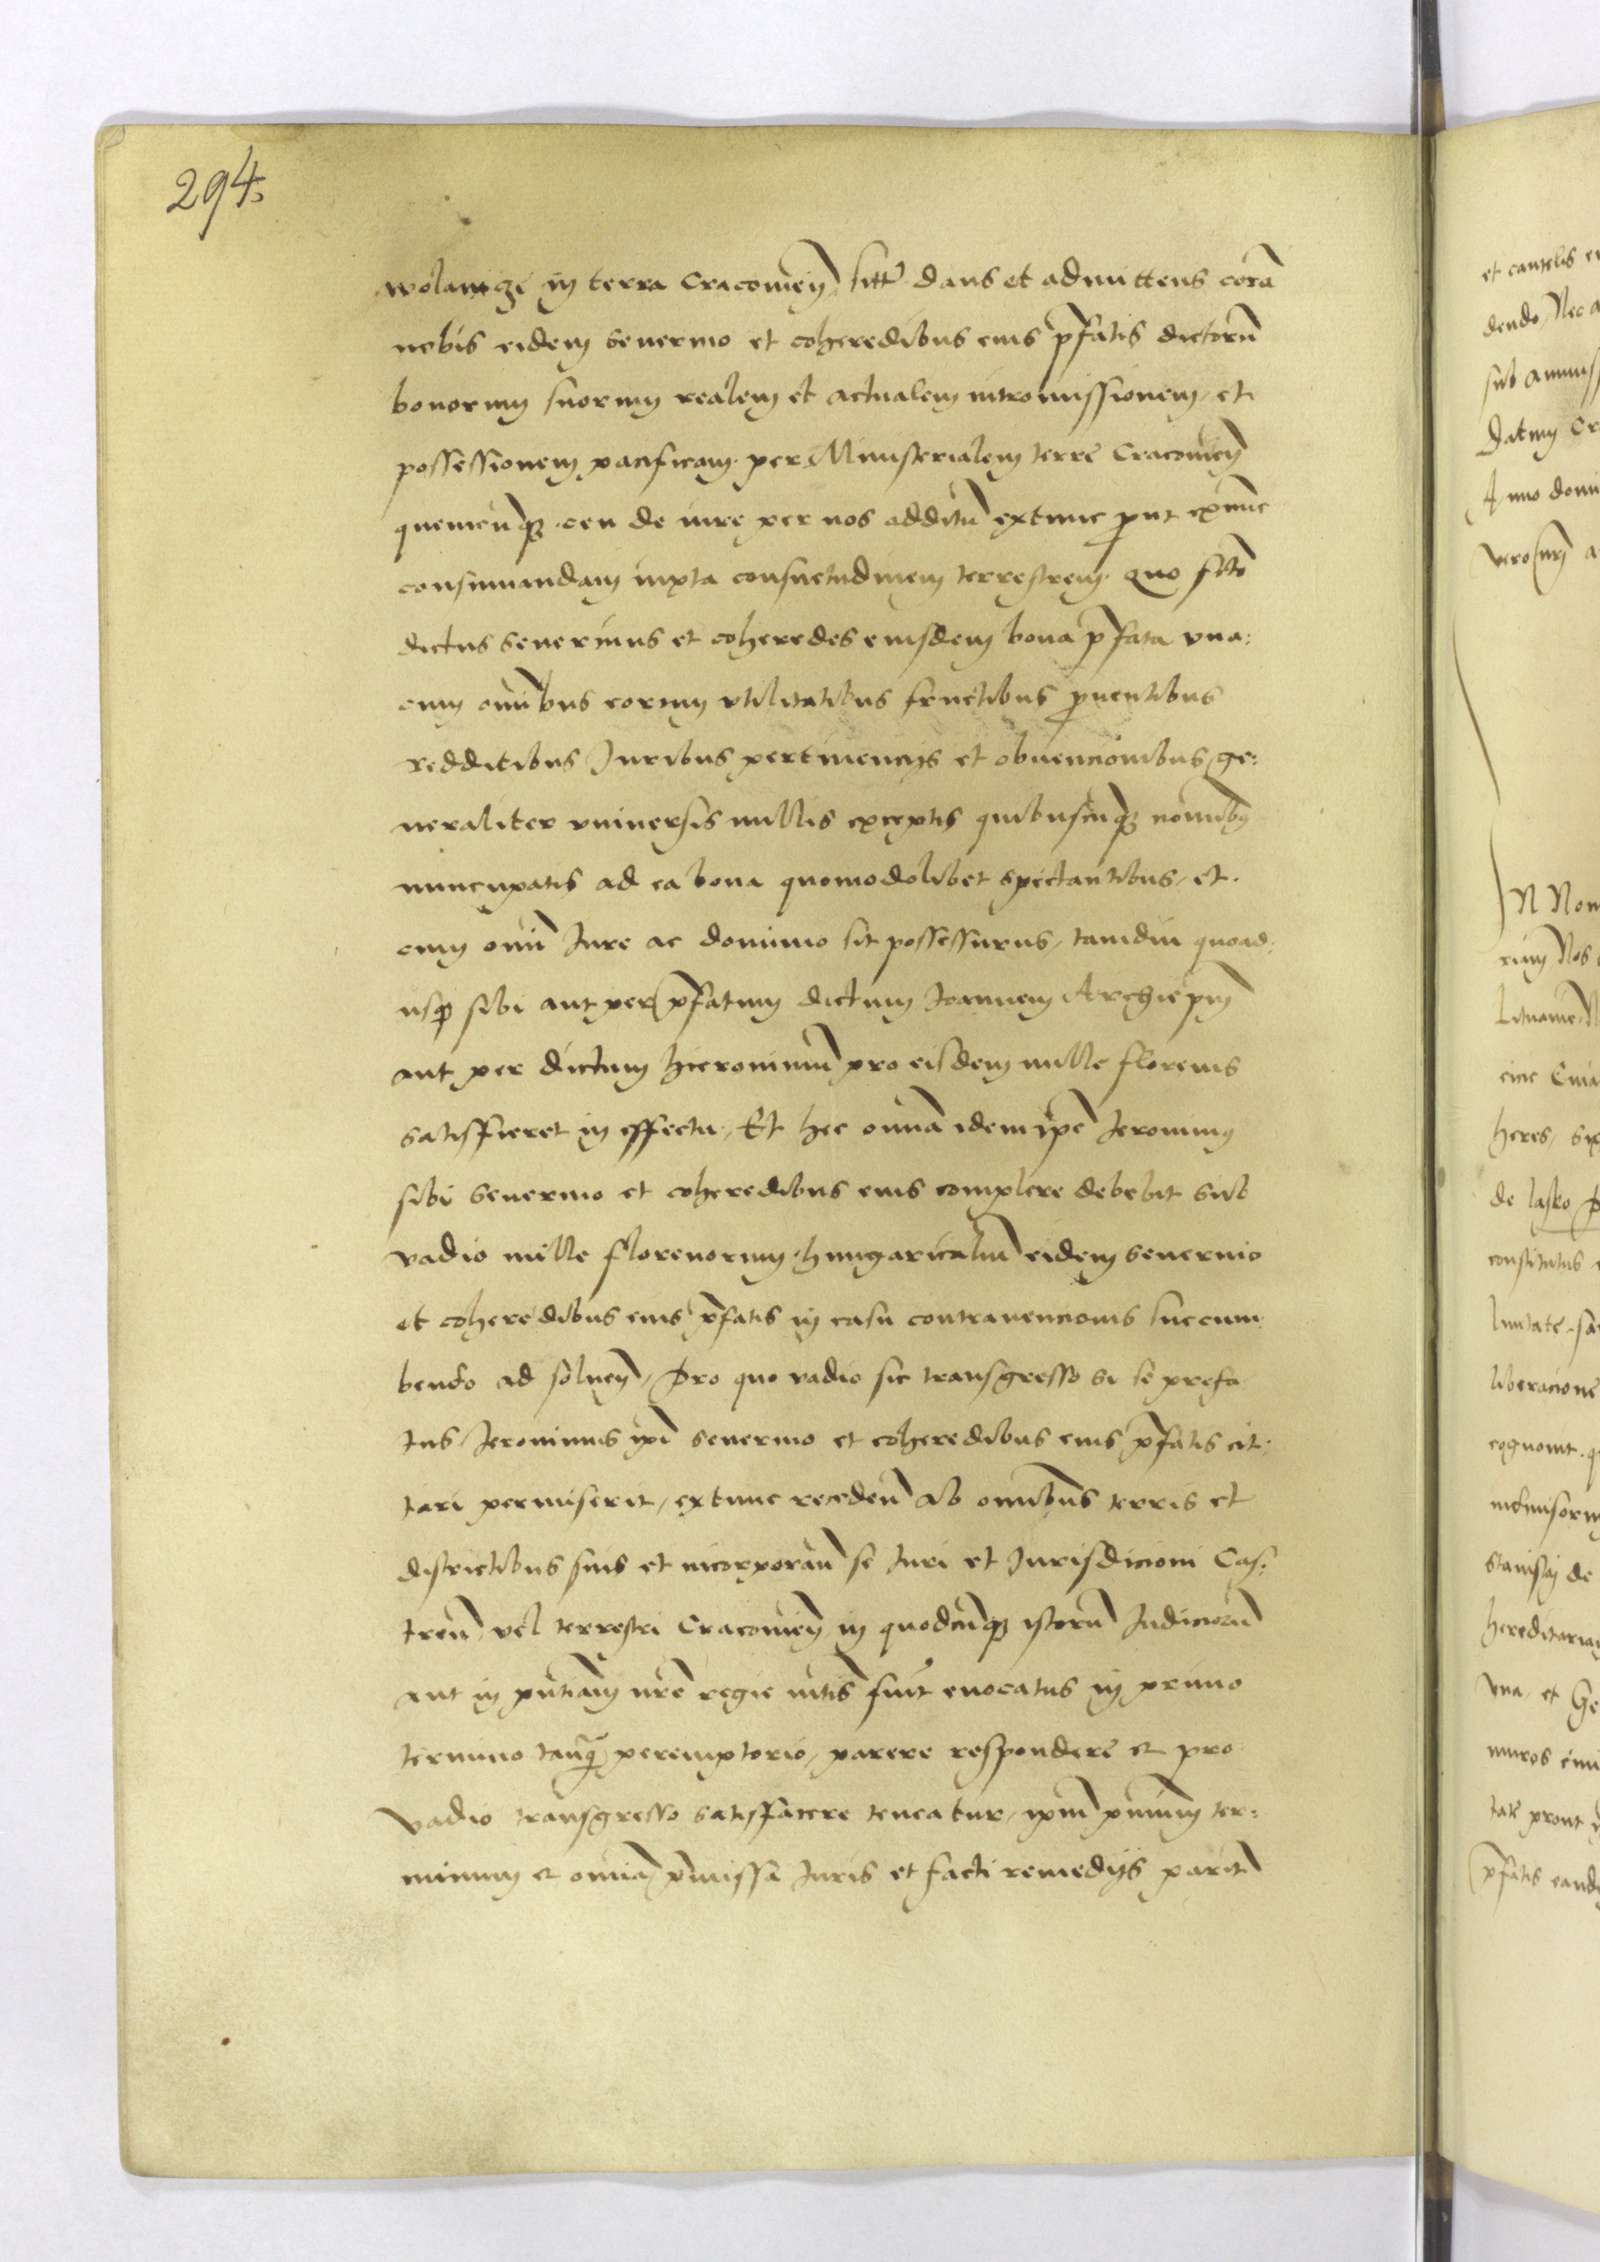 294.
wolamgi in terra Cracovien̄ sitt̄ dans et admittens corā
nobis eidem Severino et coheredibus eius p̄fatis dictorū
bonorum suorum realem et actualem intromissionem, et
possessionem pacificam per Ministerialem terre Cracovien̄
quemcunq3 ceu de iure per nos additū extunc put exnunc
consumandam iuxta consuetudinem terrestrem. Quo
dictus Severinus et coheredes eiusdem bona p̄fata una:
cum omībus eorum utilitatibus fructibus pventibus
redditibus Juribus pertinencijs et obvencionibus ge:
neraliter universis nullis exceptis quibuscūq3 nomībus
nuncupatis ad ea bona quomodolibet spectantibus, et
cum omī Jure ac dominio sit possessurus, tamdiu quoad
usq3 sibi aut per p̄fatum dictum Joannem Archiep̄m
aut per dictum Hieronimū pro eisdem mille florenis
satisfieret in effectu. Et hec omīa idem ip̄e Jeronimus
sibi Severino et coheredibus eius complere debebit sub
vadio mille florenorum hungaricaliū eidem Severino
et coheredibus eius p̄fatis in casu contravencionis succum
bendo ad solven̄, Pro quo vadio sic transgresso si se prefa
tus Jeronimus ip̄i Severino et coheredibus eius p̄fatis cit:
tari permiserit, extunc recedeñ ab omībus terris et
districtibus suis et incorporañ se Juri et Jurisdicioni Cas:
treñ vel terrestri Cracovien̄ in quodcūq3 istorū Judiciorū
aut in pn̄tiam nr̄e regie mtīs fuīt evocatus in primo
termino tanq̄ peremptorio, parere respondere et pro
vadio transgresso satisfacere teneatur, ip̄m primum ter:
minum et omīa p̄missa Juris et facti remedijs parit̄
et cautelis
dendo, Nec
sub amiss
Datum Cr
Anno domi
vero nr̄i
IN Nom
rium Nos
Lituanie
cine
heres,
de lasko
constitutus
liberacionē
cognovit
indivisorum
Stanislaj de
hereditariam
una, et
muros
tatē prout
p̄fatis eand